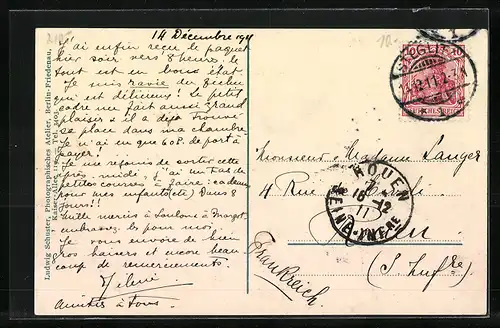 14 Décembre 1911
J'ai enfin reçu le paquet
hier soir vers 8 heures. le
tout est en bons état.
Je suis ravie du fichu
qui est délicieux! Le petit
cadre me fait aussi grand
plaisir et il a déjà trouvé
sa place dans ma chambre
Je n'ai eu que 60 Pf. de port à
payer!
Je me réjouis de sortir cette
après-midi, j'ai un tas de
petites courses à faire: cadeaux
pour mes enfants (etc) Dans 8
jours!!
Mille mercis à Loulou à Margot,
embrassez les pour moi,
Je vous envoie de bien
gros baisers et encore beau
coup de remerciements.
Hélène
Amitiés à tous.
Ludwig Schuster, Photographisches Atelier, Berlin-Friedenau,
STEGLITZ
14.12.11.
10 10
DEUTSCHES REICH
Monsieur Madame Langer
4 Rue
Rouen
(S. Infre)
Frankreich.
ROUEN
16-12
11
SEINE-INFRE